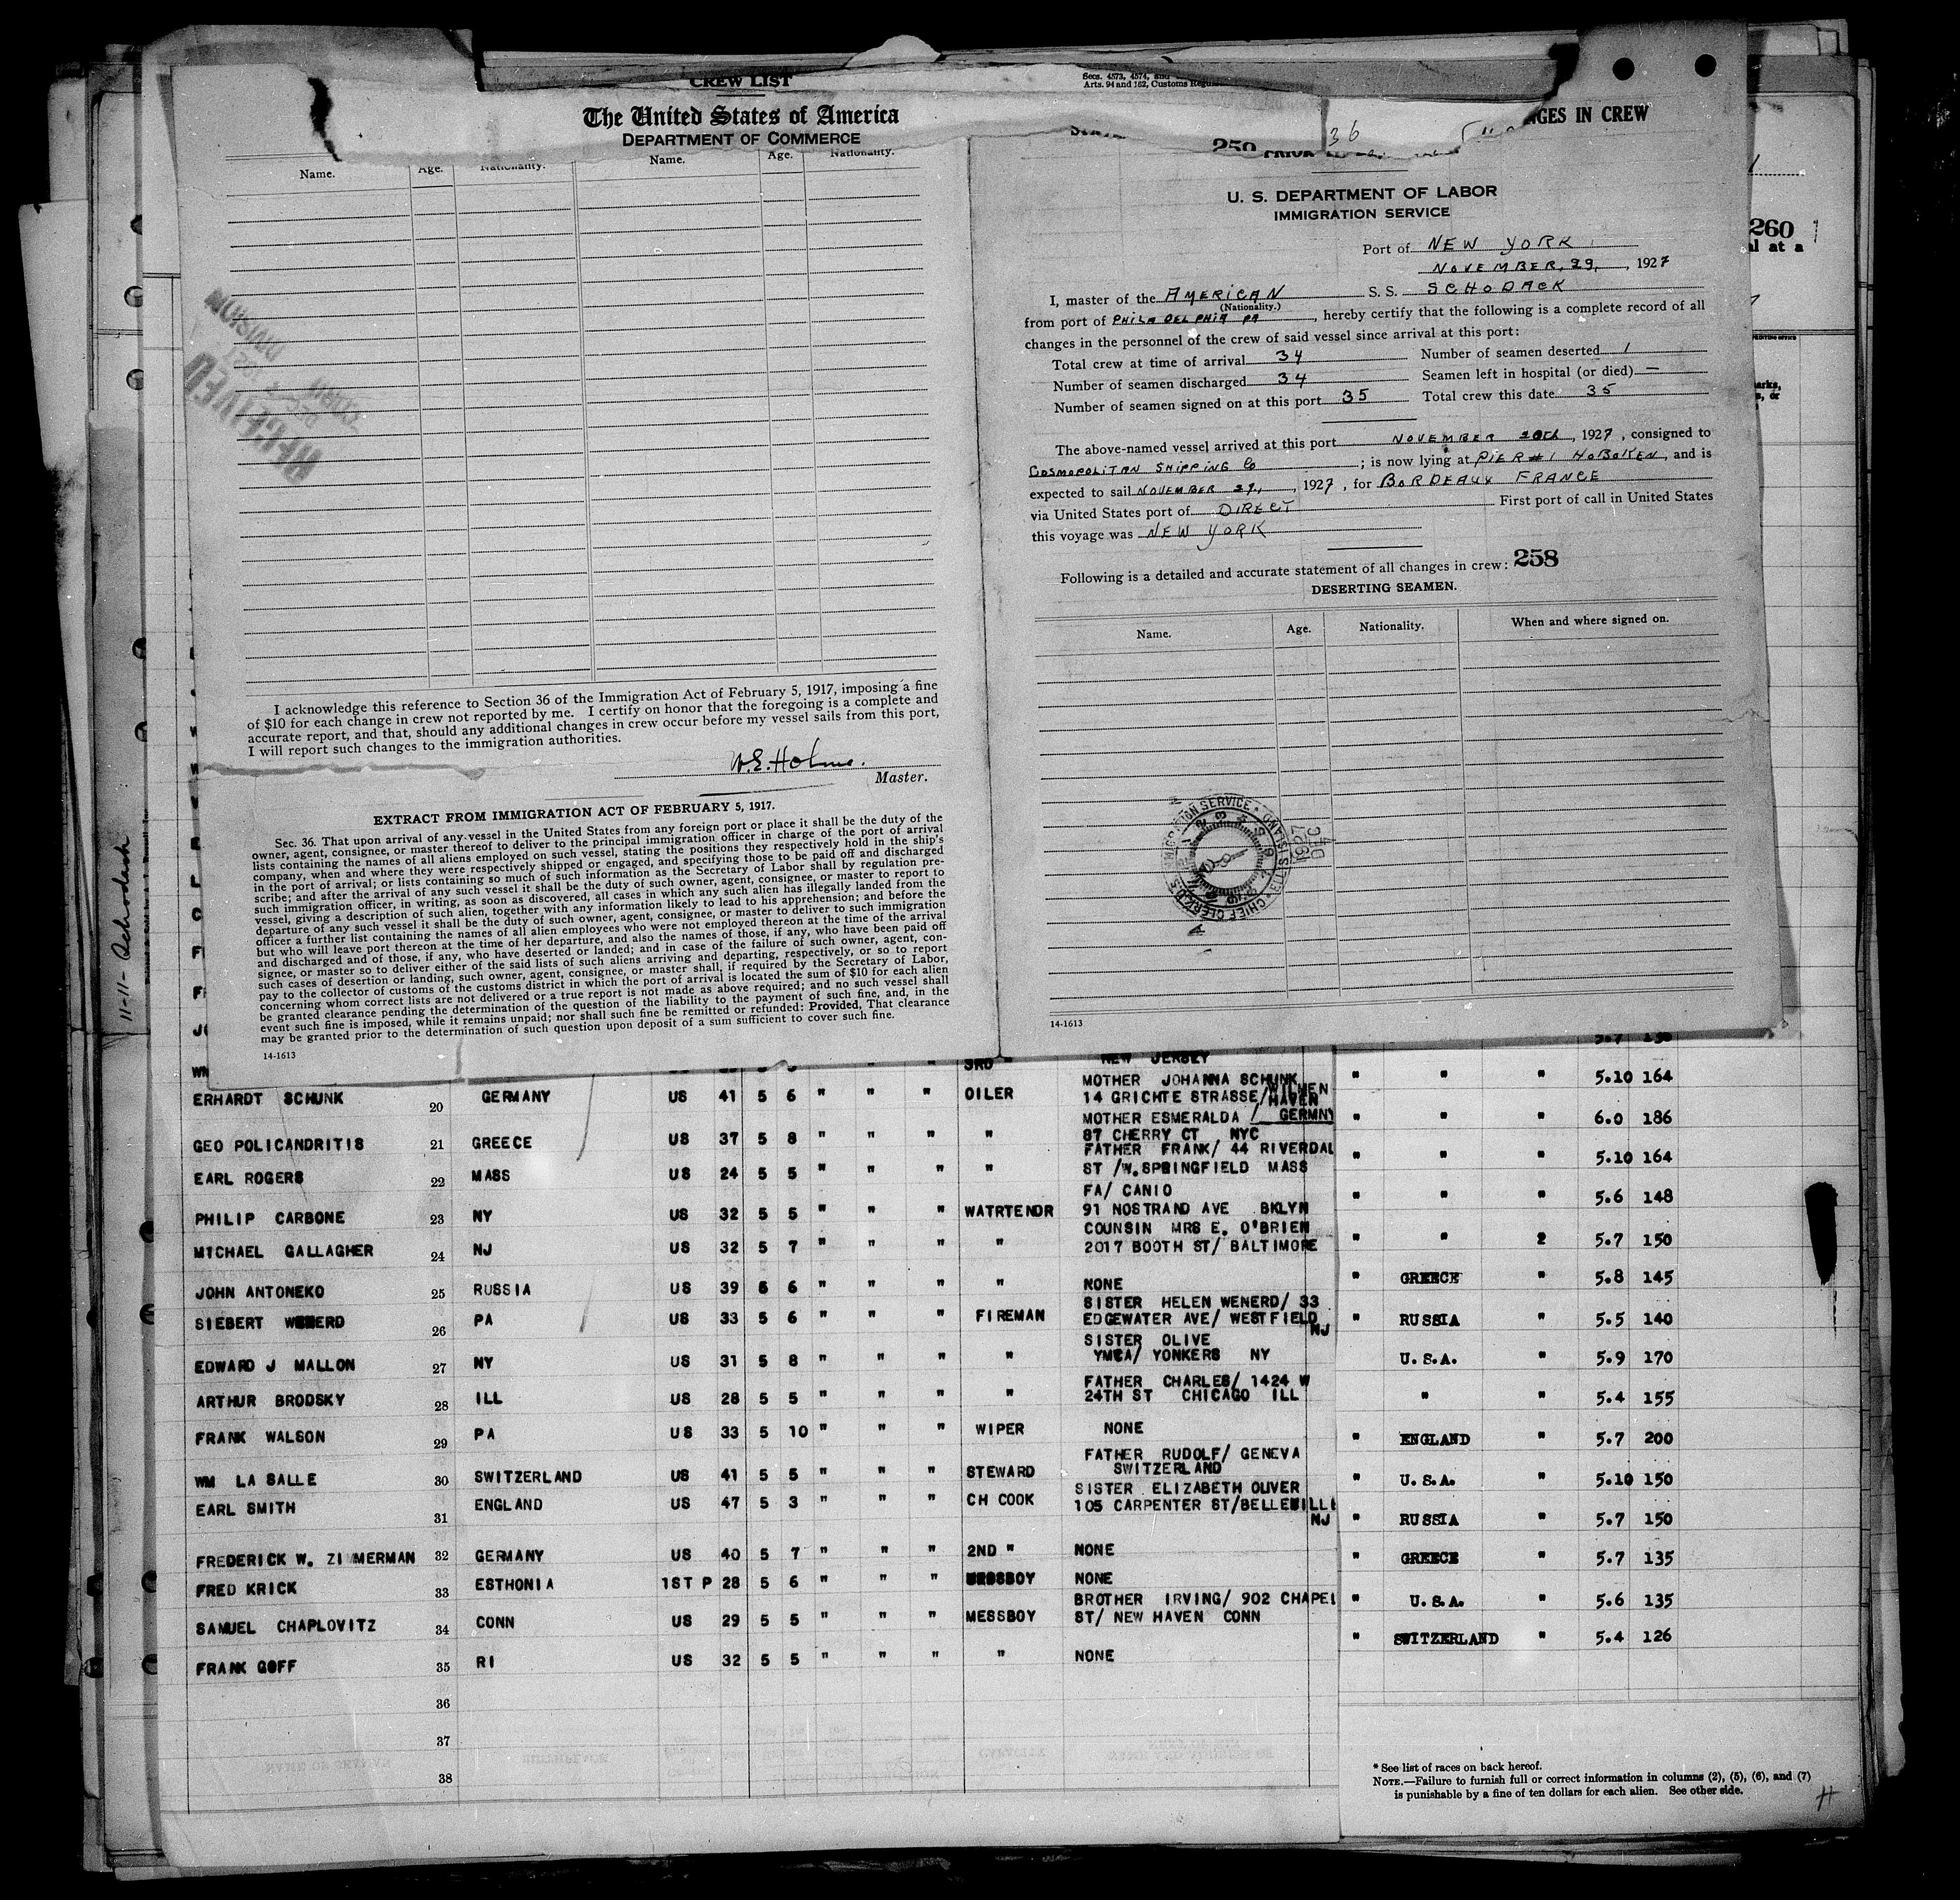 CREW LIST
Secs. 4573, 4574, and
Arts. 94 and 162, Customs
The United States of America
DEPARTMENT OF COMMERCE
NGES IN CREW
36
259
Name. Age. Nationality. Name. Age. Nationality.
RECEIVED
DIVISION
I acknowledge this reference to Section 36 of the Immigration Act of February 5, 1917, imposing a fine
of $10 for each change in crew not reported by me. I certify on honor that the foregoing is a complete and
accurate report, and that, should any additional changes in crew occur before my vessel sails from this port,
I will report such changes to the immigration authorities.
Master.
EXTRACT FROM IMMIGRATION ACT OF FEBRUARY 5, 1917.
Sec. 36. That upon arrival of any vessel in the United States from any foreign port or place it shall be the duty of the
owner, agent, consignee, or master thereof to deliver to the principal immigration officer in charge of the port of arrival
lists containing the names of all aliens employed on such vessel, stating the positions they respectively hold in the ship's
company, when and where they were respectively shipped or engaged, and specifying those to be paid off and discharged
in the port of arrival; or lists containing so much of such information as the Secretary of Labor shall by regulation pre-
scribe; and after the arrival of any such vessel it shall be the duty of such owner, agent, consignee, or master to report to
such immigration officer, in writing, as soon as discovered, all cases in which any such alien has illegally landed from the
vessel, giving a description of such alien, together with any information likely to lead to his apprehension; and before the
departure of any such vessel it shall be the duty of such owner, agent, consignee, or master to deliver to such immigration
officer a further list containing the names of all alien employees who were not employed thereon at the time of the arrival
but who will leave port thereon at the time of her departure, and also the names of those, if any, who have been paid off
and discharged and of those, if any, who have deserted or landed; and in case of the failure of such owner, agent, con-
signee, or master so to deliver either of the said lists of such aliens arriving and departing, respectively, or so to report
such cases of desertion or landing, such owner, agent, consignee, or master shall, if required by the Secretary of Labor,
pay to the collector of customs of the customs district in which the port of arrival is located the sum of $10 for each alien
concerning whom correct lists are not delivered or a true report is not made as above required; and no such vessel shall
be granted clearance pending the determination of the question of the liability to the payment of such fine, and, in the
event such fine is imposed, while it remains unpaid; nor shall such fine be remitted or refunded: Provided, That clearance
may be granted prior to the determination of such question upon deposit of a sum sufficient to cover such fine.
14-1613
U. S. DEPARTMENT OF LABOR
IMMIGRATION SERVICE
Port of NEW YORK
NOVEMBER, 29, , 1927
I, master of the AMERICAN S. S. SCHODACK
(Nationality.)
from port of PHILADELPHIA PA , hereby certify that the following is a complete record of all
changes in the personnel of the crew of said vessel since arrival at this port:
Total crew at time of arrival 34 Number of seamen deserted 1
Number of seamen discharged 34 Seamen left in hospital (or died) —
Number of seamen signed on at this port 35 Total crew this date 35
The above-named vessel arrived at this port NOVEMBER 20th , 1927 , consigned to
COSMOPOLITAN SHIPPING Co ; is now lying at PIER #1 HOBOKEN , and is
expected to sail NOVEMBER 29, , 1927 , for BORDEAUX FRANCE
via United States port of DIRECT First port of call in United States
this voyage was NEW YORK
Following is a detailed and accurate statement of all changes in crew: 258
DESERTING SEAMEN.
Name. Age. Nationality. When and where signed on.
14-1613
260
al at a
11-11- Schodack
3RD " NEW JERSEY
ERHARDT SCHUNK 20 GERMANY US 41 5 6 " " " OILER MOTHER JOHANNA SCHUNK
14 GRICHTE STRASSE/ WILMEN HAVEN GERMNY " " " 5.10 164
GEO POLICANDRITIS 21 GREECE US 37 5 8 " " " " MOTHER ESMERALDA /
87 CHERRY CT NYC " " " 6.0 186
EARL ROGERS 22 MASS US 24 5 5 " " " " FATHER FRANK/ 44 RIVERDAL
ST /W.SPRINGFIELD MASS " " " 5.10 164
PHILIP CARBONE 23 NY US 32 5 5 " " " WATRTENDR FA/ CANIO
91 NOSTRAND AVE BKLYN " " " 5.6 148
MICHAEL GALLAGHER 24 NJ US 32 5 7 " " " " COUNSIN MRS E. O'BRIEN
2017 BOOTH ST/ BALTIMORE " " 2 5.7 150
JOHN ANTONEKO 25 RUSSIA US 39 5 6 " " " " NONE " GREECE " 5.8 145
SIEBERT WENERD 26 PA US 33 5 6 " " " FIREMAN SISTER HELEN WENERD/ 33
EDGEWATER AVE/ WESTFIELD NJ " RUSSIA " 5.5 140
EDWARD J MALLON 27 NY US 31 5 8 " " " " SISTER OLIVE
YMCA/ YONKERS NY " U.S.A. " 5.9 170
ARTHUR BRODSKY 28 ILL US 28 5 5 " " " " FATHER CHARLES/ 1424 W
24TH ST CHICAGO ILL " " " 5.4 155
FRANK WALSON 29 PA US 33 5 10 " " " WIPER NONE " ENGLAND " 5.7 200
WM LA SALLE 30 SWITZERLAND US 41 5 5 " " " STEWARD FATHER RUDOLF/ GENEVA
SWITZERLAND " U.S.A. " 5.10 150
EARL SMITH 31 ENGLAND US 47 5 3 " " " CH COOK SISTER ELIZABETH OLIVER
105 CARPENTER ST/BELLEVILLE NJ " RUSSIA " 5.7 150
FREDERICK W. ZIMMERMAN 32 GERMANY US 40 5 7 " " " 2ND " NONE " GREECE " 5.7 135
FRED KRICK 33 ESTHONIA 1ST P 28 5 6 " " " MESSBOY NONE " U.S.A. " 5.6 135
SAMUEL CHAPLOVITZ 34 CONN US 29 5 5 " " " MESSBOY BROTHER IRVING/ 902 CHAPEL
ST/ NEW HAVEN CONN " SWITZERLAND " 5.4 126
FRANK GOFF 35 RI US 32 5 5 " " " " NONE
36
37
38
* See list of races on back hereof.
NOTE.—Failure to furnish full or correct information in columns (2), (5), (6), and (7)
is punishable by a fine of ten dollars for each alien. See other side.